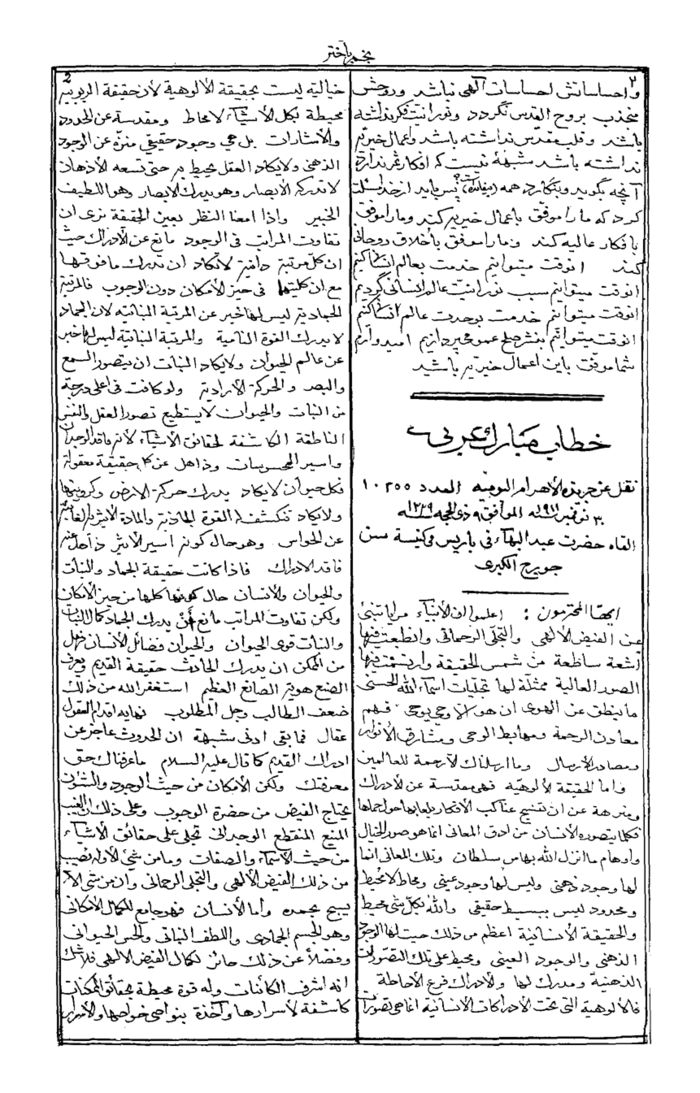 نجم باختر
۲
و احساساتش احساسات الهی نباشد و روحش
منجذب بروح القدس نگردد و نورانیت فکر نداشته
باشد و قلب مقدس نداشته باشد و اعمال خیریه
نداشته باشد شبههٔ نیست که افکار ثمر ندارد
آنچه بگوید و بنگارد همه است پس باید از خدا
کرد که ما را موفق باعمال خیریه کند و ما را موفق
بافکار عالیه کند و ما را موفق باخلاق روحانی
کند آنوقت میتوانیم خدمت بعالم انسانی کنیم
آنوقت میتوانیم سبب نورانیت عالم انسانی گردیم
آنوقت میتوانیم خدمت بوحدت عالم انسانی کنیم
آنوقت میتوانیم بنشر صلح عمومی پردازیم امیدوارم
شما موفق باین اعمال خیریه باشید
خطاب مبارك عربی
نقل عن جريدة الأهرام اليومية العدد ١٠٢٥٥
٣٠ نوفمبر ٩١١ سنه الموافق ٩ ذى الحجه سنه ١٣٢٩
القاه حضرت عبد البهآء فى باريس فى كنيسة سن
جورج الكبرى
ايها المحترمون : اعلموا ان الأنبياء مرايا تنبئ
عن الفيض الألهى والتجلى الرحمانى وانطبعت فيها
أشعة ساطعة من شمس الحقيقة وارتسمت فيها
الصور العالية ممثلة لها تجليات اسمآء الله الحسنى
ما ينطق عن الهوى ان هو الا وحى يوحى فهم
معادن الرحمة ومهابط الوحى ومشارق الأنوار
ومصادر الآثار وما ارسلناك الا رحمة للعالمين
واما الحقيقة الألوهية فهى مقدسة عن الأدراك
ومنزهة عن ان تنسج عناكب الأفكار بلعابها حول حماها
فكلما يتصوره الأنسان من ادق المعانى انما هو صور الخيال
وأوهام ما انزل الله بها من سلطان وتلك المعانى انما
لها وجود ذهنى وليس لها وجود عينى ومحاط لا محيط
ومحدود ليس ببسيط حقيقى والله بكل شئ محيط
والحقيقة الأنسانية اعظم من ذلك حيث لها الوجود
الذهنى والوجود العينى ومحيط على تلك التصورات
الذهنية ومدرك لها والأدراك فرع الأحاطة
فالألوهية التى تحت الأدراكات الأنسانية انما هى تصورات
2
خيالية ليست بحقيقة الألوهية لأن حقيقة الربوبية
محيطة بكل الأشيآء لا تحاط ومقدسة عن الحدود
والأشارات بل هى وجود حقيقى منزه عن الوجود
الذهنى ولا يكاد العقل يحيط به حتى تسعه الأذهان
لا تدركه الأبصار وهو يدرك الأبصار وهو اللطيف
الخبير واذا امعنا النظر بعين الحقيقة نرى ان
تفاوت المراتب فى الوجود مانع عن الأدراك حيث
ان كل مرتبة دانية لا تكاد ان تدرك ما فوقها
مع ان كلتيهما فى حيز الأمكان دون الوجوب فالمرتبة
الجمادية ليس لها خبر عن المرتبة النباتية لان الجماد
لا يدرك القوة النامية والمرتبة النباتية ليس لها خبر
عن عالم الحيوان ولا يكاد النبات ان يتصور السمع
والبصر والحركة الأرادية ولو كانت فى اعلى درجة
من النبات والحيوان لا يستطيع تصور العقل والنفس
الناطقة الكاشفة لحقائق الأشيآء لأنه فاقد الوجدان
واسير المحسوسات وذاهل عن كل حقيقة معقولة
فكل حيوان لا يكاد يدرك حركة الارض وكرويتها
ولا يكاد تنكشف له القوة الجاذبة والمادة الأثيرية الغائبة
عن الحواس وهو حال كونه اسير الأثير ذاهل عنه
فاقد الادراك فاذا كانت حقيقة الجماد والنبات
والحيوان والأنسان حال كونها كلها من حيز الأمكان
ولكن تفاوت المراتب مانع أن يدرك الجماد كمال النبات
والنبات قوى الحيوان والحيوان فضائل الأنسان فهل
من الممكن ان يدرك الحادث حقيقة القديم ويعرف
الصنع هوية الصانع العظيم استغفر الله من ذلك
ضعف الطالب وجل المطلوب نهاية اقدام العقول
عقال فما بقى ادنى شبهة ان الحدوث عاجز عن
ادراك القديم كما قال عليه السلام ما عرفناك حق
معرفتك ولكن الأمكان من حيث الوجود والشئون
يحتاج الفيض من حضرة الوجوب وعلى ذلك ان الغيب
المنيع المنقطع الوجدانى تجلى على حقائق الأشيآء
من حيث الأسمآء والصفات وما من شئ الا وله نصيب
من ذلك الفيض الألهى والتجلى الرحمانى وان من شئ الا
يسبح بحمده وأما الأنسان فهو جامع للكمال الأمكانى
وهو الجسم الجمادى واللطف النباتى والحس الحيوانى
وفضلًا عن ذلك حائز لكمال الفيض الالهى فلا شك
انه اشرف الكائنات وله قوة محيطة بحقائق الممكنات
كاشفة لأسرارها وآخذة بنواصى خواصها والأسرار